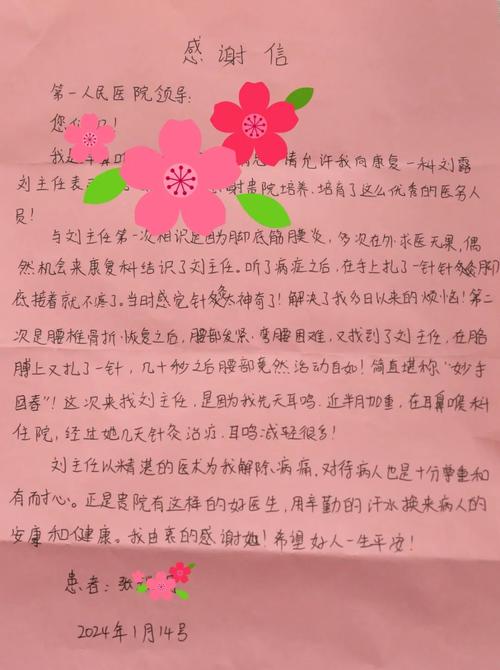 感谢信
第一人民医院领导:
您
我是耳鼻 请允许我向康复一科刘露
刘主任表 谢贵院培养.培育了这么优秀的医务人
员!
与刘主任第一次相识是因为脚底筋膜炎,多次在外求医无果,偶
然机会来康复科结识了刘主任。听了病症之后,在手上扎了一针针灸脚
底接着就不疼了。当时感觉针灸太神奇了!解决了我多日以来的烦恼!第二
次是腰椎骨折.恢复之后,腰部发紧.弯腰困难,又找到了刘主任,在胳
膊上又扎了一针,几十秒之后腰部竟然活动自如!简直堪称“妙手
回春”!这次来找刘主任,是因为我先天耳鸣.近半月加重,在耳鼻喉科
住院,经过她几天针灸治疗.耳鸣减轻很多!
刘主任以精湛的医术为我解除病痛,对待病人也是十分尊重和
有耐心。正是贵院有这样的好医生,用辛勤的汗水换来病人的
安康和健康。我由衷的感谢她!希望好人一生平安!
患者:张
2024年1月14号